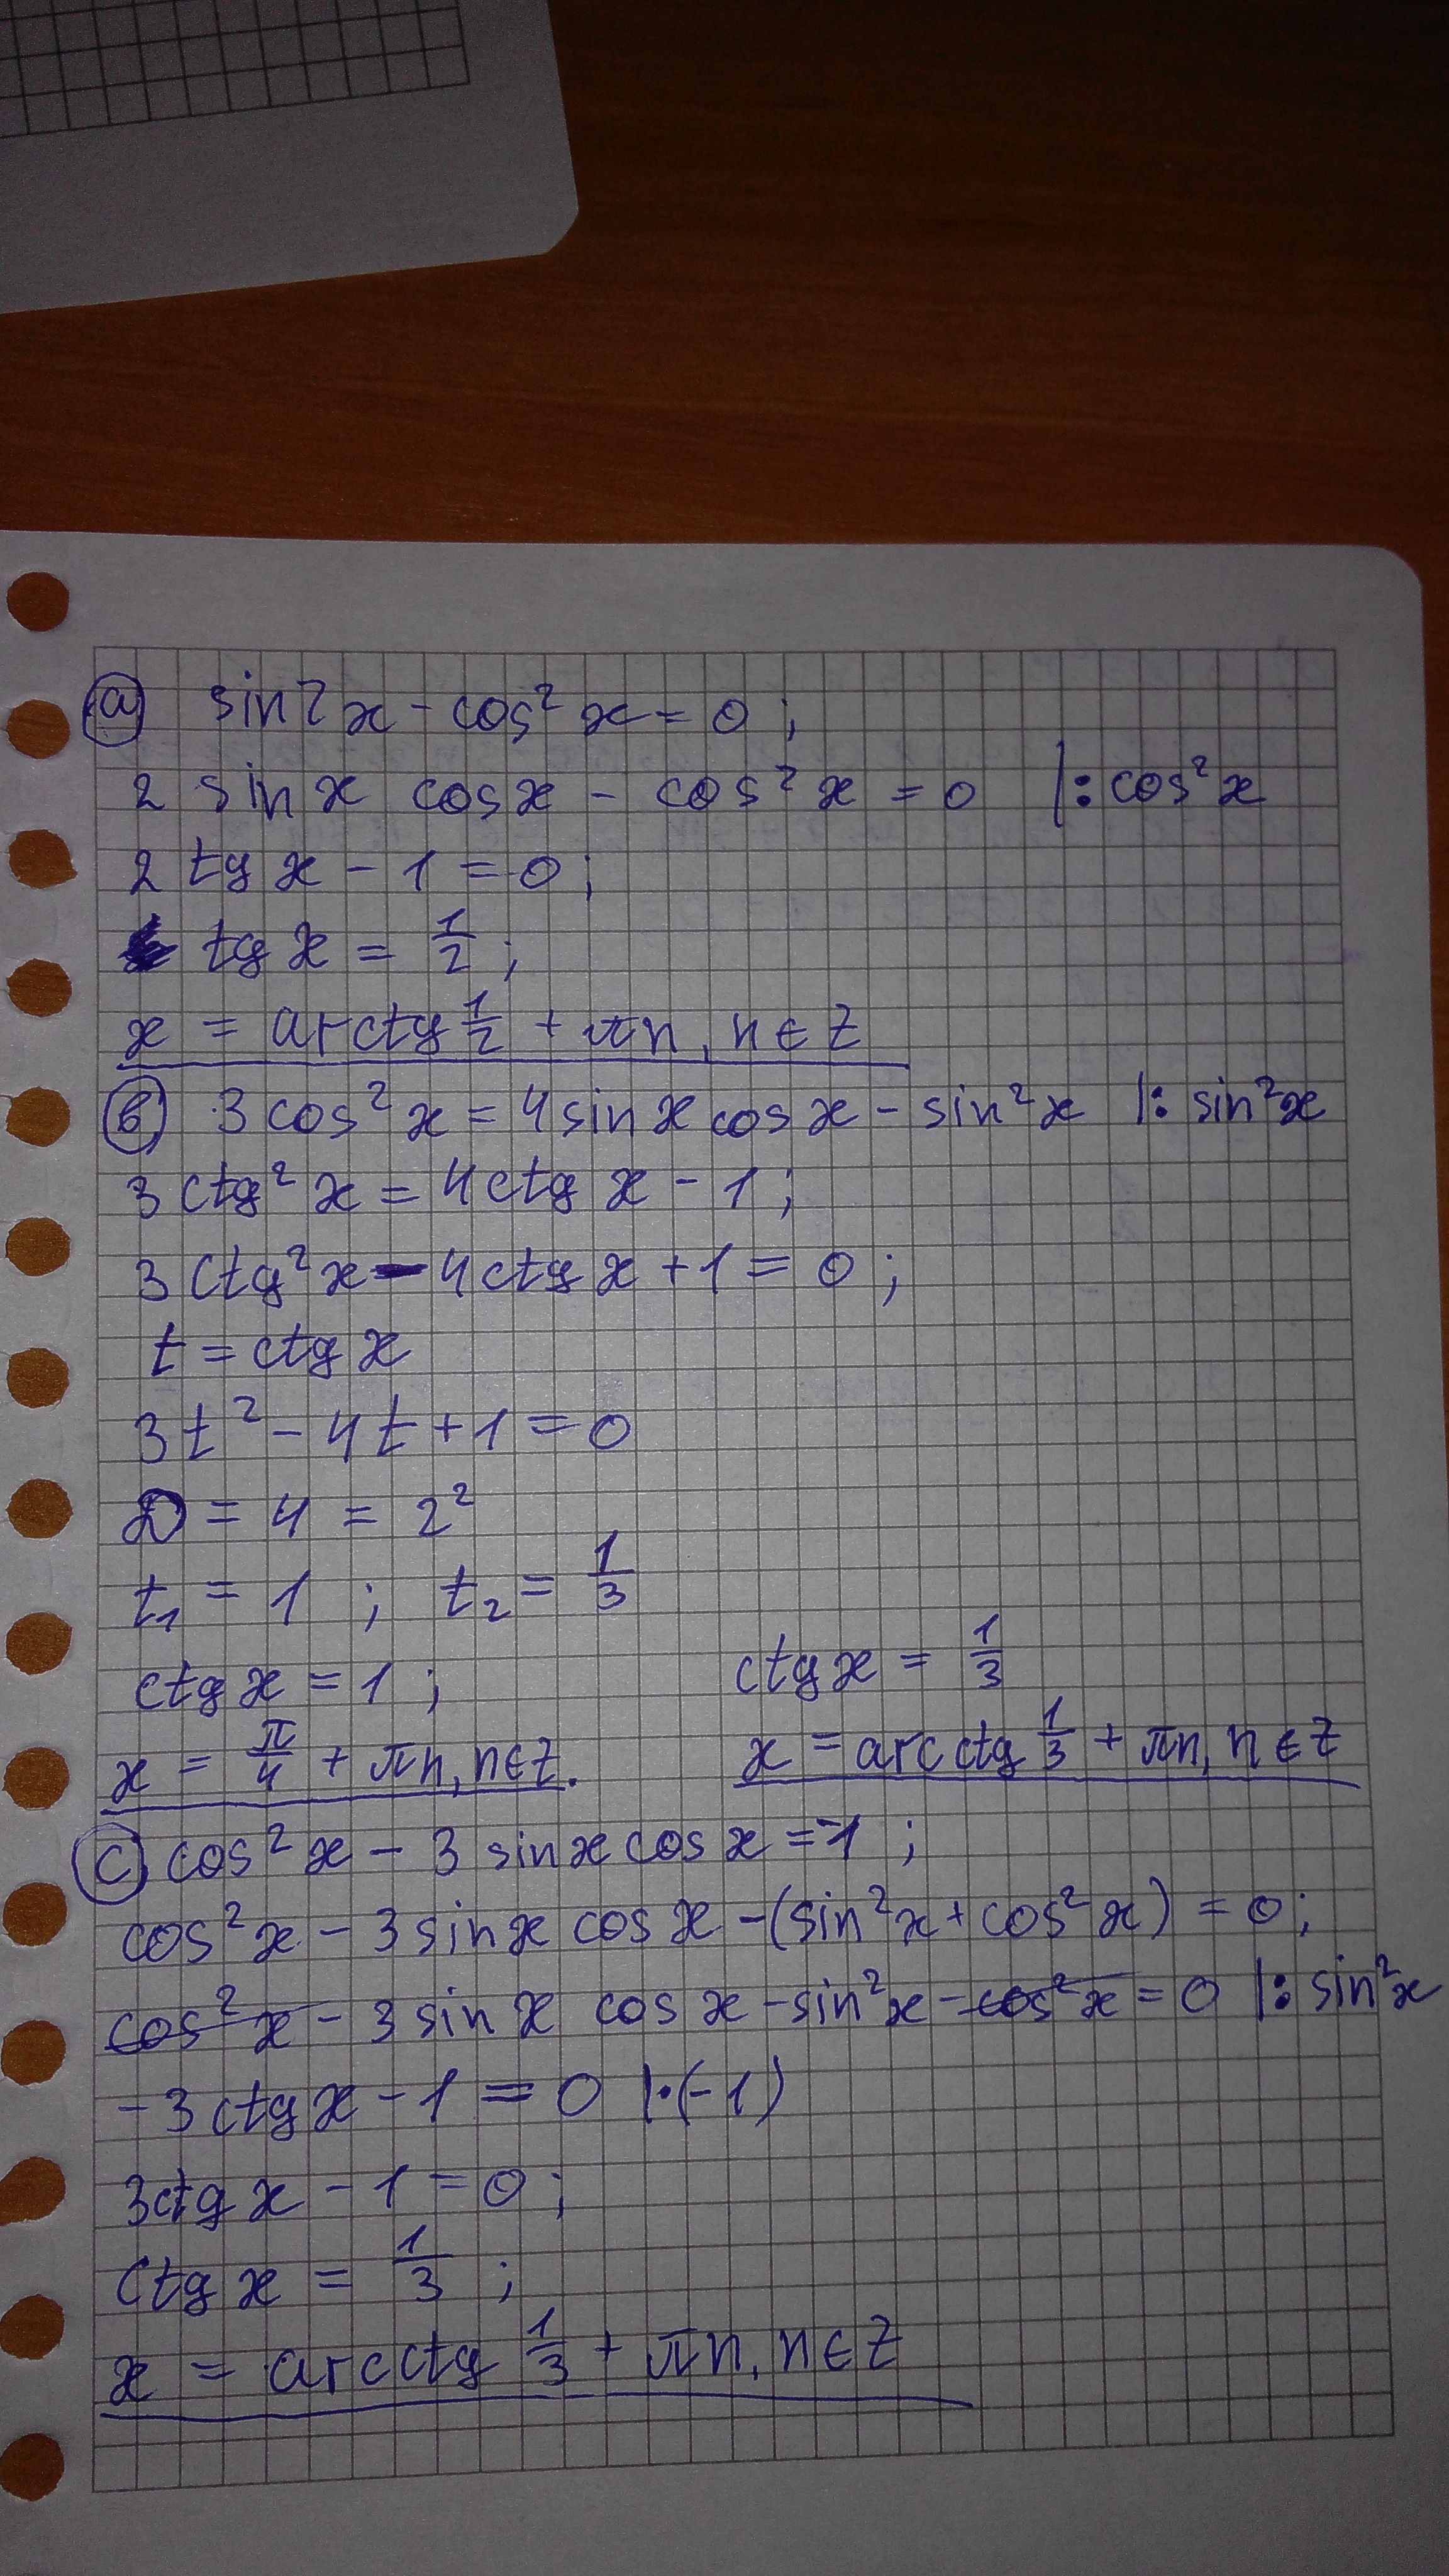 a) sin2x - cos²x = 0 ;
2 sin x cos x - cos²x = 0 |: cos²x
2 tg x - 1 = 0 ;
tg x = 1/2 ;
x = arctg 1/2 + πn, n ∈ Z
в) 3 cos²x = 4 sin x cos x - sin²x |: sin²x
3 ctg²x = 4 ctg x - 1 ;
3 ctg²x - 4 ctg x + 1 = 0 ;
t = ctg x
3t² - 4t + 1 = 0
D = 4 = 2²
t₁ = 1 ; t₂ = 1/3
ctg x = 1 ; ctg x = 1/3
x = π/4 + πn, n ∈ Z. x = arcctg 1/3 + πn, n ∈ Z
c) cos²x - 3 sin x cos x = -1 ;
cos²x - 3 sin x cos x - (sin²x + cos²x) = 0 ;
cos²x - 3 sin x cos x - sin²x - cos²x = 0 |: sin²x
-3 ctg x - 1 = 0 |·(-1)
3 ctg x - 1 = 0 ;
ctg x = 1/3 ;
x = arcctg 1/3 + πn, n ∈ Z